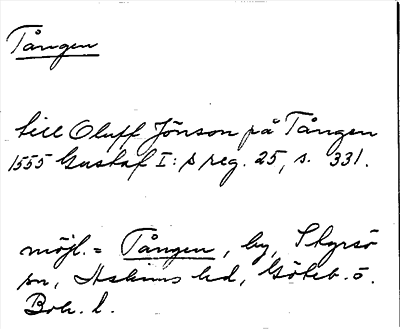 Tången
till Oluff Jönson på Tången
1555 Gustaf I:s reg. 25, s. 331.
möjl. = Tången, by, Styrsö
sn, Askims hd, Göteb. o.
Boh. l.